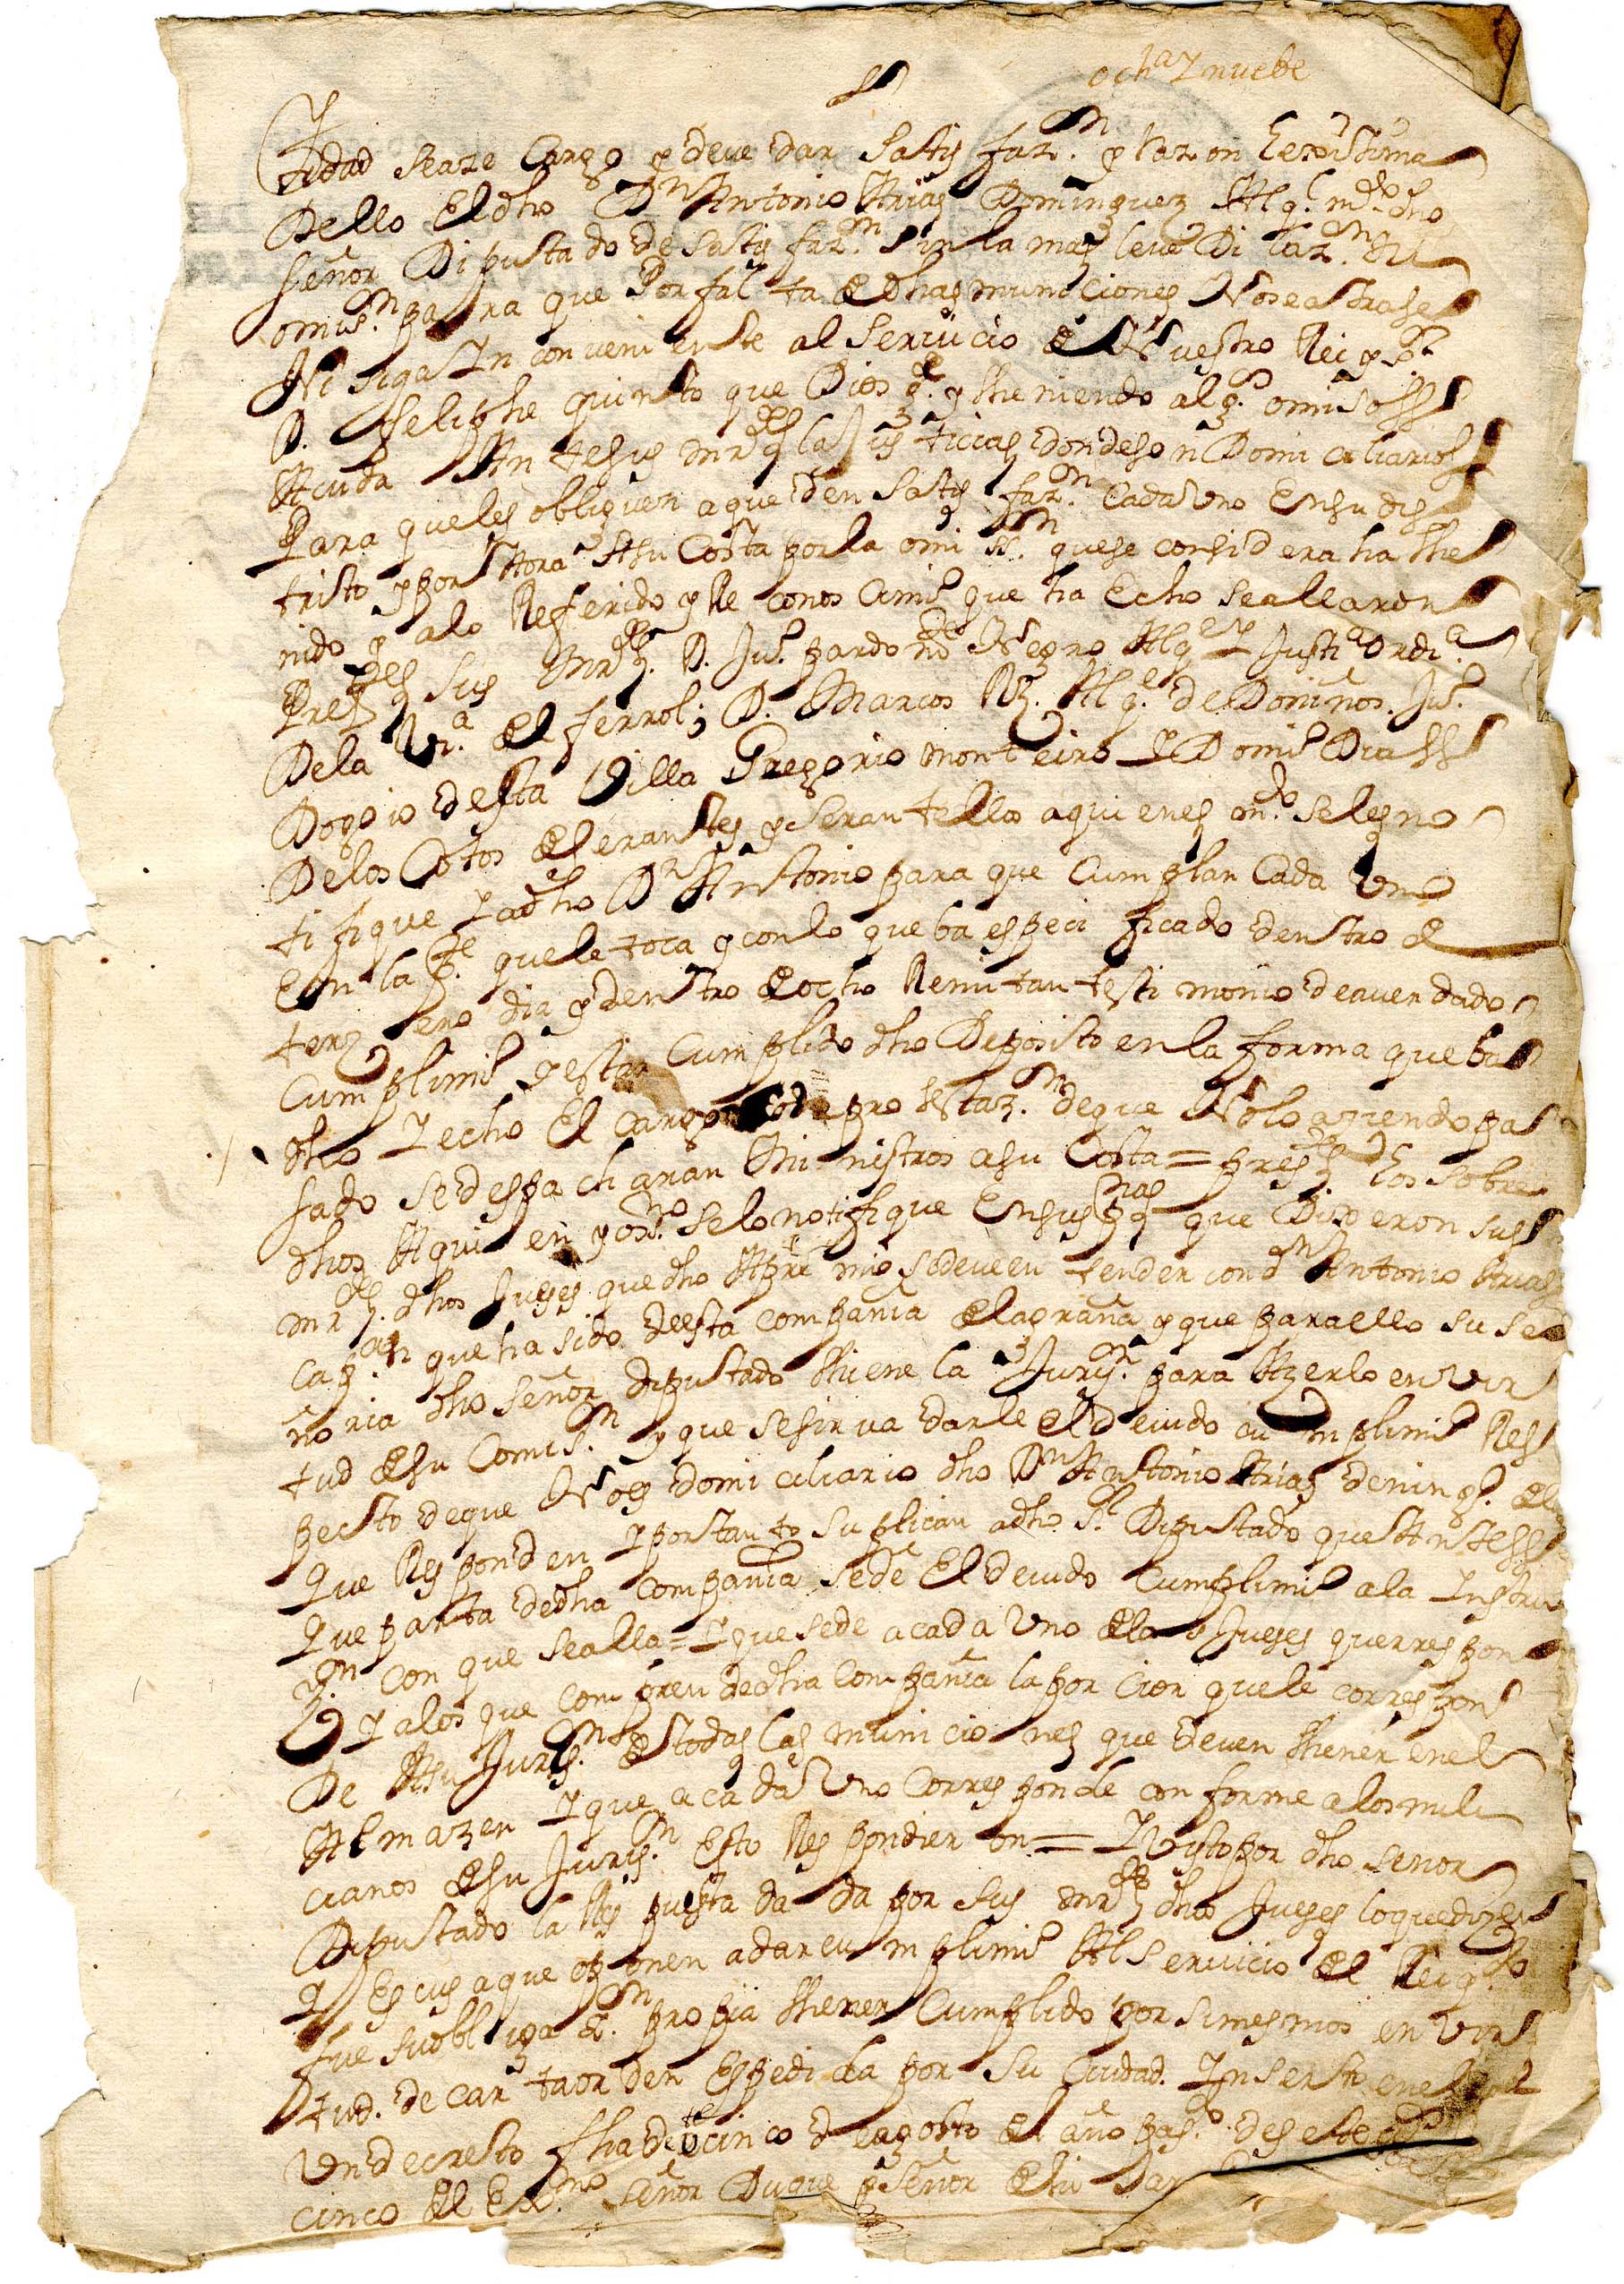 och.ª y nuebe
zidad seaze Cargo y deve dar Satis faz.n y Razon lexistima
Dello El dho D.n Antonio Arias Dominguez dho
señor Diputado de Satis faz.n sin la mas leve Dilaz.n ni
omis.n para que Por falta de dhas municiones No se atrase
Ni siga Inconveniente al Serivicio de Nuestro Rei y S.r
D. Feliphe quinto que Dios g.e y theniendo alg.o omiso
Acuda Antesus mrds y las Justicias donde son Domiciliarios
Para queles obliguen aque den Satis faz.n Cada Uno Ensu dis
tristo y por Aora Asu Costa por la omis.n quese considera ha the
nido y alo Refferido y Re conos cimi.to que ha Echo seallaron
Pres.tes sus mrds. D. Ju.º pardo Negro Justi.ª Ordi.ª
Dela Vi.ª del ferrol; D. Marcos de Doniños. Ju.º
Dopio desta Villa Gregorio monteiro y Domi.º Dias
Delos Cotos de serantes y Serantellos aquienes seles no
tifique y adho D.n Antonio para que Cumplan Cada Uno
Con la p.te quele toca y conlo queba especi ficado dentro de
terz ero dia y dentro de ocho Remitan testi monio deaverdado
Cumplimi.to y estar Cumplido dho Deposito enla forma queba
dho Y echo El cargo protestaz.n deque No lo aziendo pa
sado sedespacharan Ministros asu Costa = pres.tes los sobre
dhos Aqui en yo ss.no selo notifique Ensus p.nas que Dixeron sus
mrds. dhos Jueses que dho Apremio sedeve en tender con d.n Antonio Arias
Cap.an que ha sido desta Compania dela graña y que para ello su se
ñoria dho señor diputado thiene la Juris.n para Azerlo en vir
tud desu Comis.n y que sesirva darle el devido cumplimi.to Res
pecto deque No es domiciliario dho D.n Antonio Arias deningª.
Que Responden Y por tanto suplican adho S.r Diputado que Antes
Que parta dedha Compania sede El devido Cumplimi.to ala Instru
z.n con que sealla = Y que sede acada Uno delos Jueses que respon
Y alos que compren dedha Compania la por cion quele correspon
De Asu Juris.n de todas las municiones que deven thener enel
Almazen Y que acada Uno Corresponde con forme alos mili
cianos desu Juris.n Esto Respondieron = Y visto por dho señor
Diputado la Res puesta dada por sus mrds dhos Jueses loquedizen
Y Escusa que oponen adar cumplimi.to Al Servicio del Rei q.do
fue su obligaz.n propia thener Cumplido por simesmos en vir
tud. de carta orden Espedida por su Ciudad. Inserto en el
Un decreto fha de cinco de agosto del año pas.º de sete
cinco del Ex.mo señor Duque y señor de hi jar